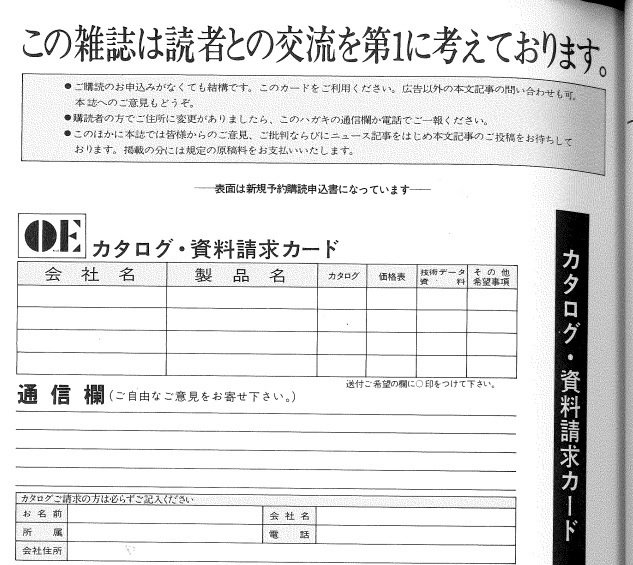 この雑誌は読者との交流を第1に考えております。
●ご購読のお申込みがなくても結構です。このカードをご利用ください。広告以外の本文記事の問い合わせも可。
本誌へのご意見もどうぞ。
●購読者の方でご住所に変更がありましたら、このハガキの通信欄か電話でご一報ください。
●このほかに本誌では皆様からのご意見、ご批判ならびにニュース記事をはじめ本文記事のご投稿をお待ちして
おります。掲載の分には規定の原稿料をお支払いいたします。
――表面は新規予約購読申込書になっています――
OE カタログ・資料請求カード
会社名 製品名 カタログ 価格表 技術データ資料 その他希望事項
送付ご希望の欄に○印をつけて下さい。
通信欄(ご自由なご意見をお寄せ下さい。)
カタログご請求の方は必らずご記入ください
お名前 会社名
所属 電話
会社住所
カタログ・資料請求カード